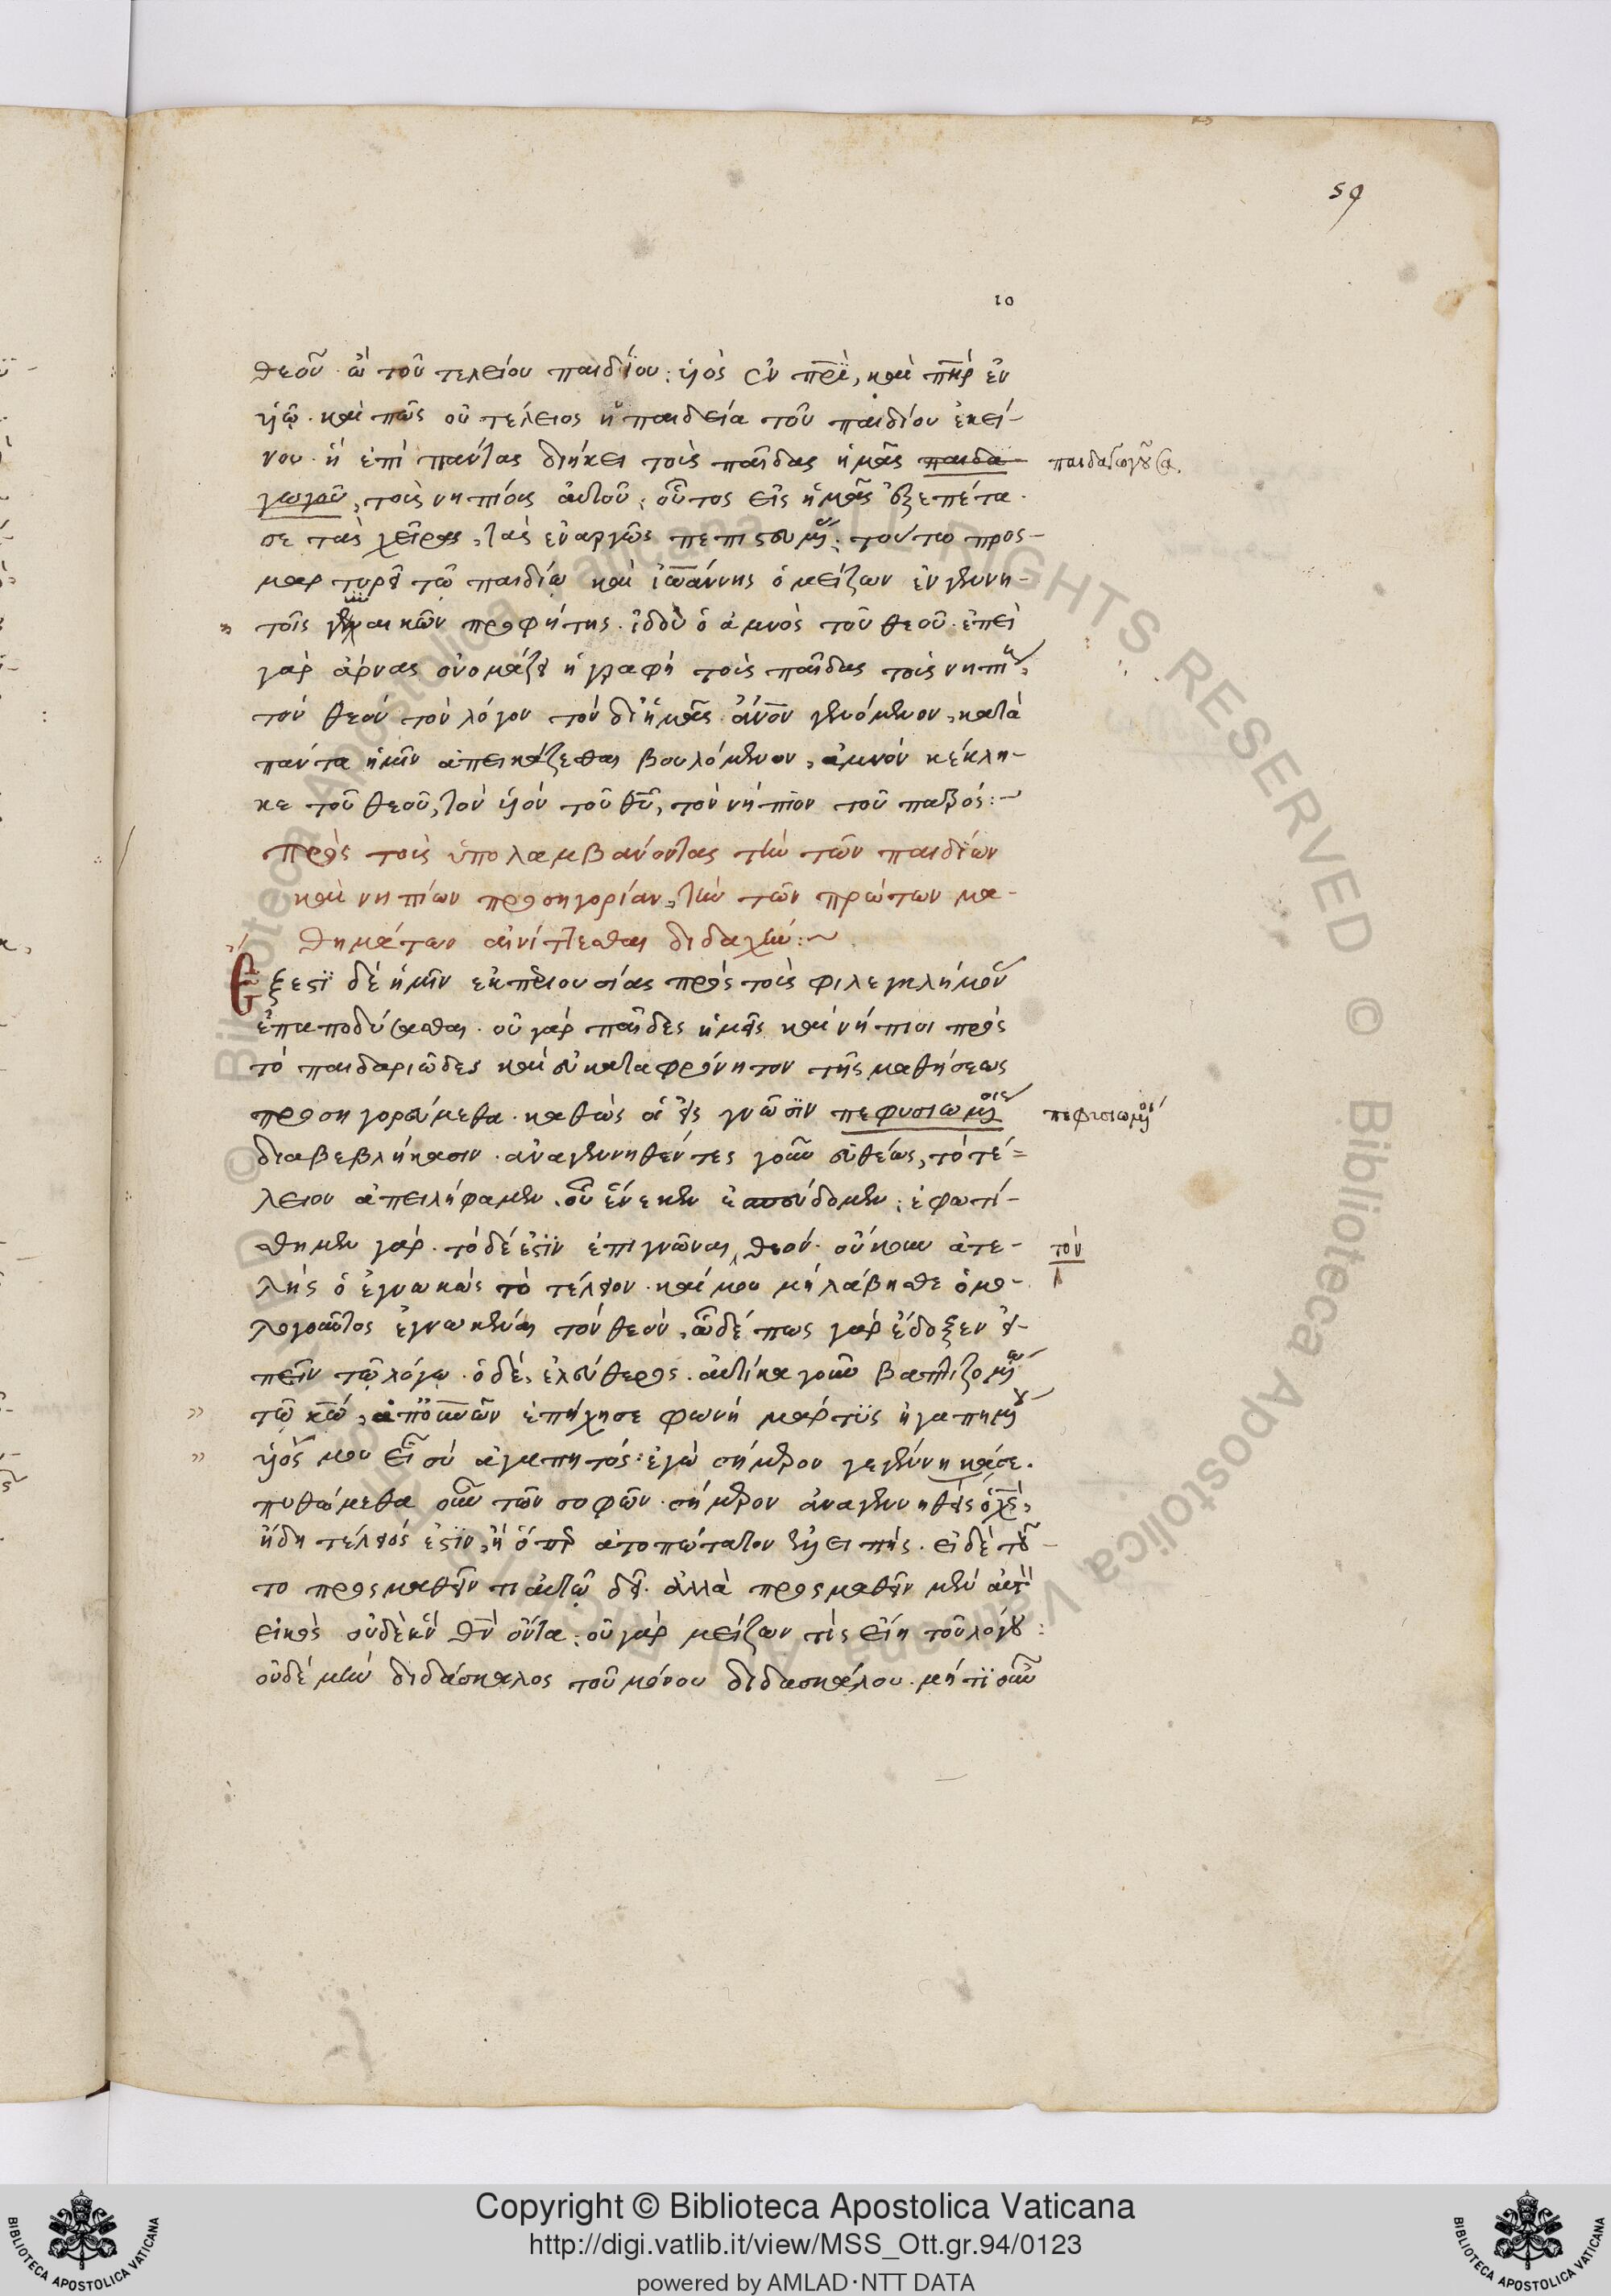 59
10
θεοῦ· ὢ τοῦ τελείου παιδίου: ὑὸς ἐν π̅ρ̅ὶ, καὶ π̅η̅ρ ἐν
ὑῷ· καὶ πῶς οὐ τέλειος ἡ παιδεία τοῦ παιδίου ἐκεί-
νου· ἣ ἐπὶ πάντας διήκει τοὺς παῖδας ἡμᾶς παιδα παιδαγωγοῦσα.
γωγοῦ, τοὺς νηπίους αὐτοῦ: οὗτος εἰς ἡμᾶς ἐξεπέτα-
σε τὰς χεῖρας, τὰς ἐναργῶς πεπιστευμένας: τούτω προς-
μαρτυρεῖ τῷ παιδίῳ καὶ ἰωάννης ὁ μείζων ἐν γεννη-
τοῖς γυναικῶν προφήτης· ἰδοὺ ὁ ἀμνὸς τοῦ θεοῦ· ἐπεὶ
γὰρ ἄρνας ὀνομάζει ἡ γραφὴ τοὺς παῖδας τοὺς νηπίους,
τὸν θεὸν τὸν λόγον τὸν δι' ἡμᾶς ἄ̅ν̅ο̅ν γενόμενον, κατὰ
πάντα ἡμῖν ἀπεικάζεσθαι βουλόμενον, ἀμνὸν κέκλη-
κε τοῦ θεοῦ, τὸν ὑὸν τοῦ θ̅υ̅, τὸν νήπιον τοῦ πατρός:~
Πρὸς τοὺς ὑπολαμβάνοντας τὴν τῶν παιδίων
καὶ νηπίων προσηγορίαν, τὴν τῶν πρώτων μα-
θημάτων αἰνίττεσθαι διδαχήν:~
Ἔξεστι δὲ ἡμῖν ἐκ περιουσίας πρὸς τοὺς φιλεγκλήμονας
ἐπαποδύσασθαι· οὐ γὰρ παῖδες ἡμεῖς καὶ νήπιοι πρὸς
τὸ παιδαριῶδες καὶ εὐκαταφρόνητον τῆς μαθήσεως
προσηγορεύμεθα· καθὼς οἱ εἰς γνῶσιν πεφυσιωμένοις πεφυσιωμένοι
διαβεβλήκασιν· ἀναγεννηθέντες γοῦν εὐθέως, τὸ τέ=
λειον ἀπειλήφαμεν, οὗ ἕνεκεν ἐσπεύδομεν: ἐφωτί-
σθημεν γὰρ· τὸ δέ ἐστιν ἐπιγνῶναι θεόν· οὔκουν ἀτε- τὸν
λὴς ὁ ἐγνωκὼς τὸ τέλειον· καί μου μὴ λάβησθε ὁμο-
λογοῦντος ἐγνωκέναι τὸν θεόν, ὧδέ πως γὰρ ἔδοξεν εἰ-
πεῖν τῷ λόγῳ· ὁ δὲ, ἐλεύθερος· αὐτίκα γοῦν βαπτιζομένῳ
τῷ κ̅ω̅, ἀπ' ο̅υ̅ν̅ῶν ἐπήχησε φωνὴ μάρτυς ἠγαπημένου
ὑός μου εἶ σὺ ἀγαπητός: ἐγὼ σήμερον γεγέννηκά σε.
πυθώμεθα οὖν τῶν σοφῶν· σήμερον ἀναγεννηθεὶς ὁ χ̅ς̅,
ἤδη τέλειός ἐστιν, ἢ ὅπερ ἀτοπώτατον ἐλλειπής· εἰ δὲ τοῦ-
το προσμαθεῖν τι αὐτῷ δεῖ· ἀλλὰ προσμαθεῖν μὲν αὐτὸν
εἰκὸς οὐδὲ ἓν θ̅ν̅ ὄντα: οὐ γὰρ μείζων τὶς εἴη τοῦ λόγου:
οὐδὲ μὴν διδάσκαλος τοῦ μόνου διδασκάλου· μή τι οὖν
Copyright © Biblioteca Apostolica Vaticana
http://digi.vatlib.it/view/MSS_Ott.gr.94/0123
powered by AMLAD·NTT DATA